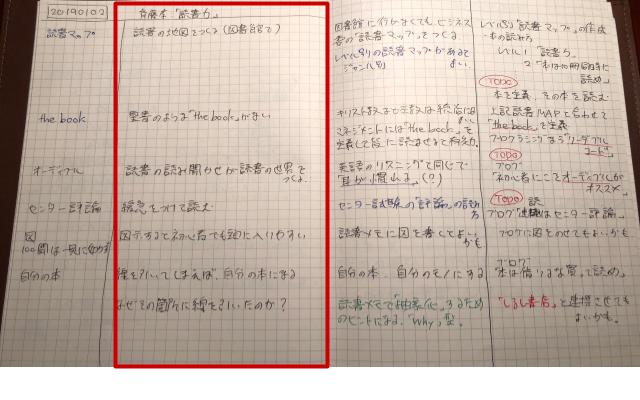 20190102
斉藤本「読書力」
読書マップ
読書の地図をつくる(図書館で)
図書館に行かなくても、ビジネス
書の「読書マップ」をつくる
レベル別の読書マップがあると
ジャンル別 よい。
レベル別「読書マップ」の作成
本の読み方
レベル1「読書力」
2「本は10冊同時に
読め」
TODO
本を定義、その本を読む
the book
聖書のような「the book」がない
キリスト教など宗教は統治によい
マネジメントには「the book」を
定義して皆に読ませると有効。
上記読書MAPと合わせて
「the book」を定義
プログラミングなら「リーダブル
コード」
TODO
オーディブル
読書の読み聞かせが読書の世界を
つくる。
英語のリスニングと同じで
「耳が慣れる」(?)
ブログ
「初心者にこそオーディブルが
オススメ」
TODO 読
センター評論
緩急をつけて読む
センター試験の「評論」の読み方
ブログ「はセンター評論」
図
図示すると初心者でも頭に入りやすい
読書メモに図を書くとよい
かも
ブログに図をのせてもよいかも
自分の本
線を引いてしまえば、自分の本になる
自分の本、自分のモノにする
ブログ
「本は借りるな買って読め」
なぜその箇所に線を引いたのか?
読書メモで「抽象化」するため
のヒントになる、「Why」型。
「しるし書店」と連携させても
よいかも。